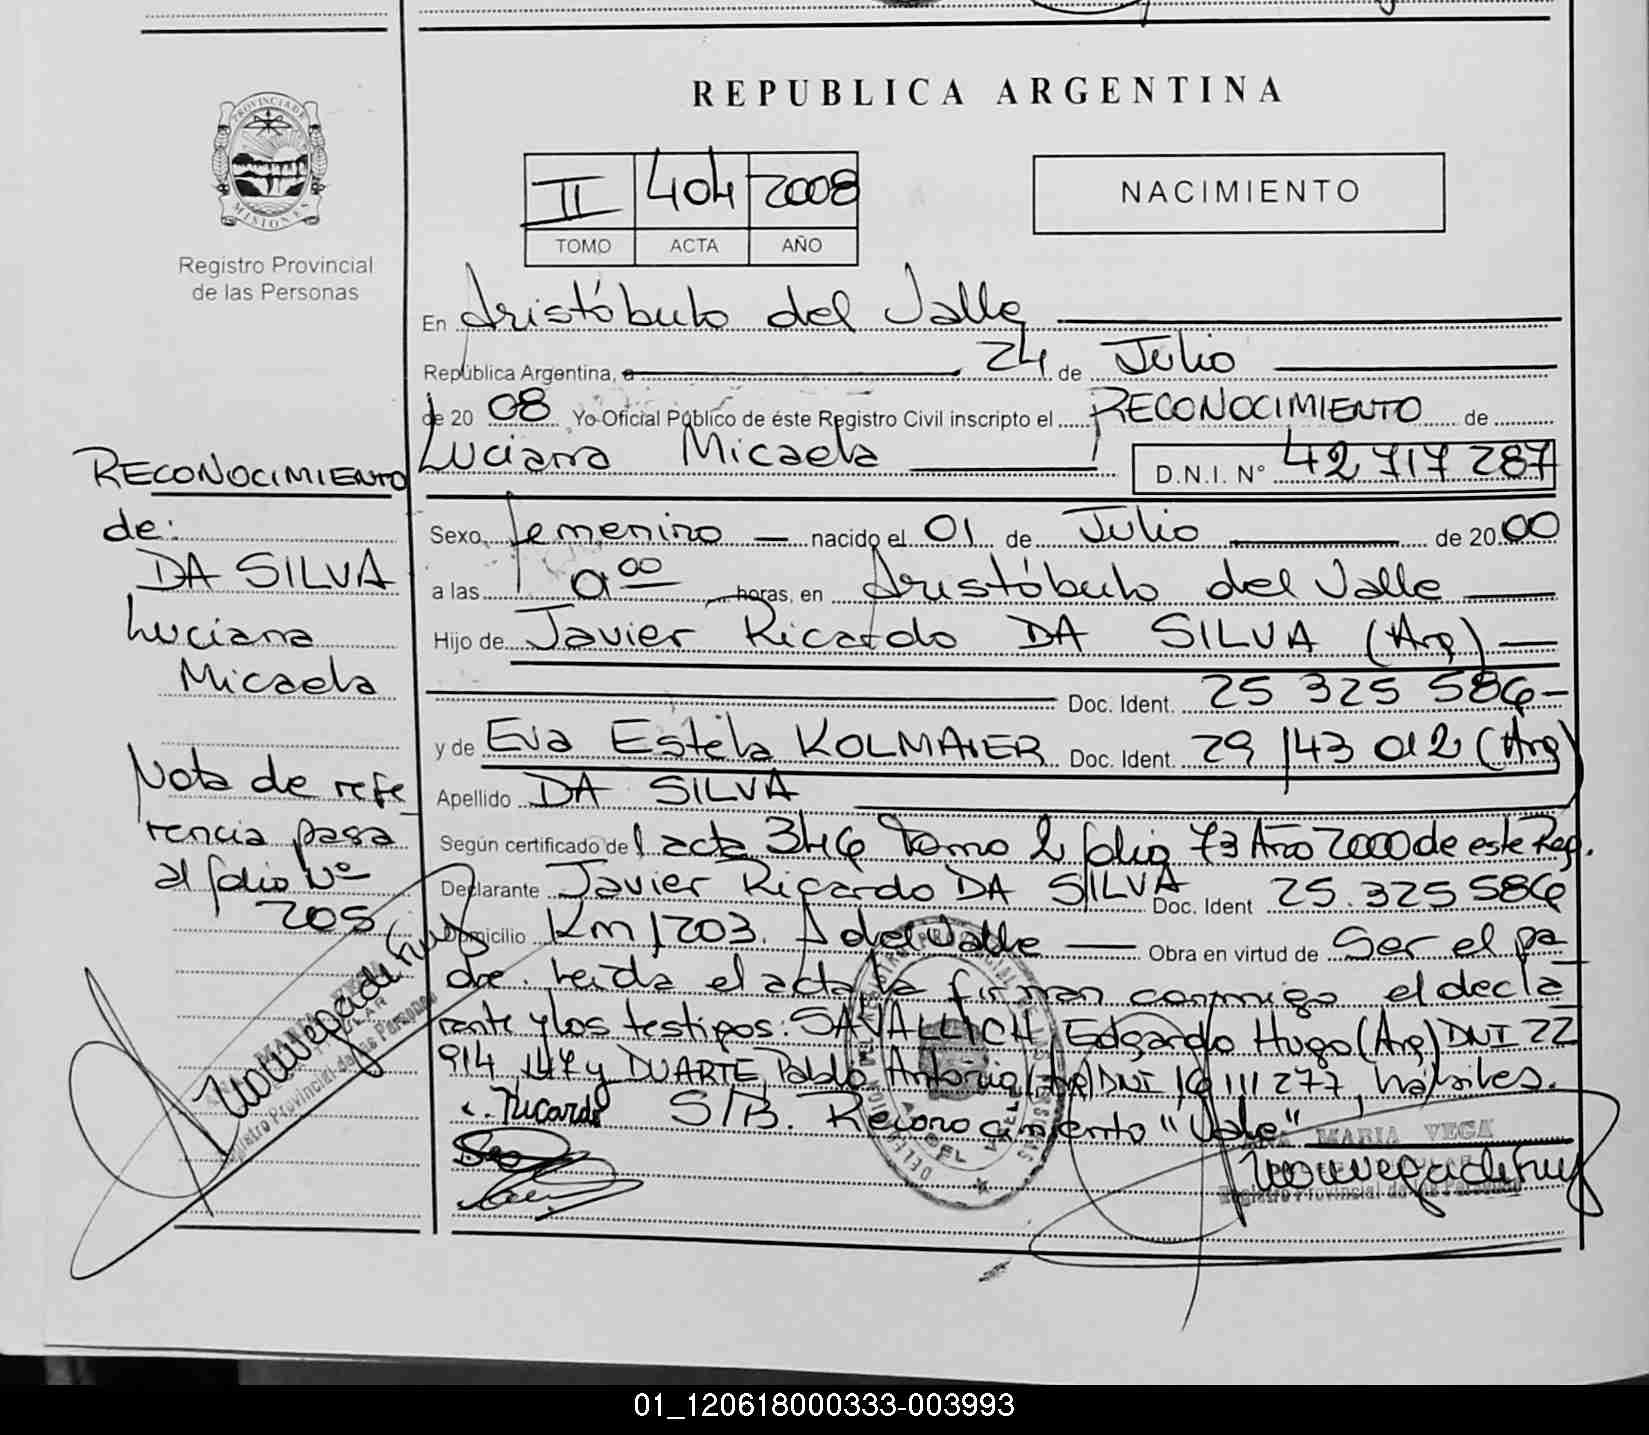 REPUBLICA ARGENTINA
PROVINCIA DE
MISIONES
Registro Provincial
de las Personas
II 404 2008
TOMO ACTA AÑO
NACIMIENTO
En Aristóbulo del Valle
República Argentina, a 24 de Julio
de 20 08 Yo Oficial Público de éste Registro Civil inscripto el RECONOCIMIENTO de
Luciana Micaela D.N.I. N° 42 717 287
Sexo femenino nacido el 01 de Julio de 20 00
a las 0 00 horas, en Aristóbulo del Valle
Hijo de Javier Ricardo DA SILVA (Arg)
Doc. Ident. 25 325 586
y de Eva Estela KOLMAIER Doc. Ident. 29 143 012 (Arg)
Apellido DA SILVA
Según certificado del acta 346 Tomo 2 folio 73 Año 2000 de este Reg.
Declarante Javier Ricardo DA SILVA Doc. Ident 25.325586
Domicilio Km 1203. A del Valle Obra en virtud de Ser el pa
dre. Leida el acta la firman conmigo el decla
rante y los testigos: SAVALLICH Edgardo Hugo (Arg) DNI 22
914 147 y DUARTE Pablo Antonio (Arg) DNI 16 111 277, hábiles.
Ricardo S/B. Reconocimiento "Vale"
MARIA VEGA
Registro Provincial de las Personas
RECONOCIMIENTO
de:
DA SILVA
Luciana
Micaela
Nota de refe
rencia pasa
al folio Nº
205
MARIA VEGA
Registro Provincial de las Personas
01_120618000333-003993